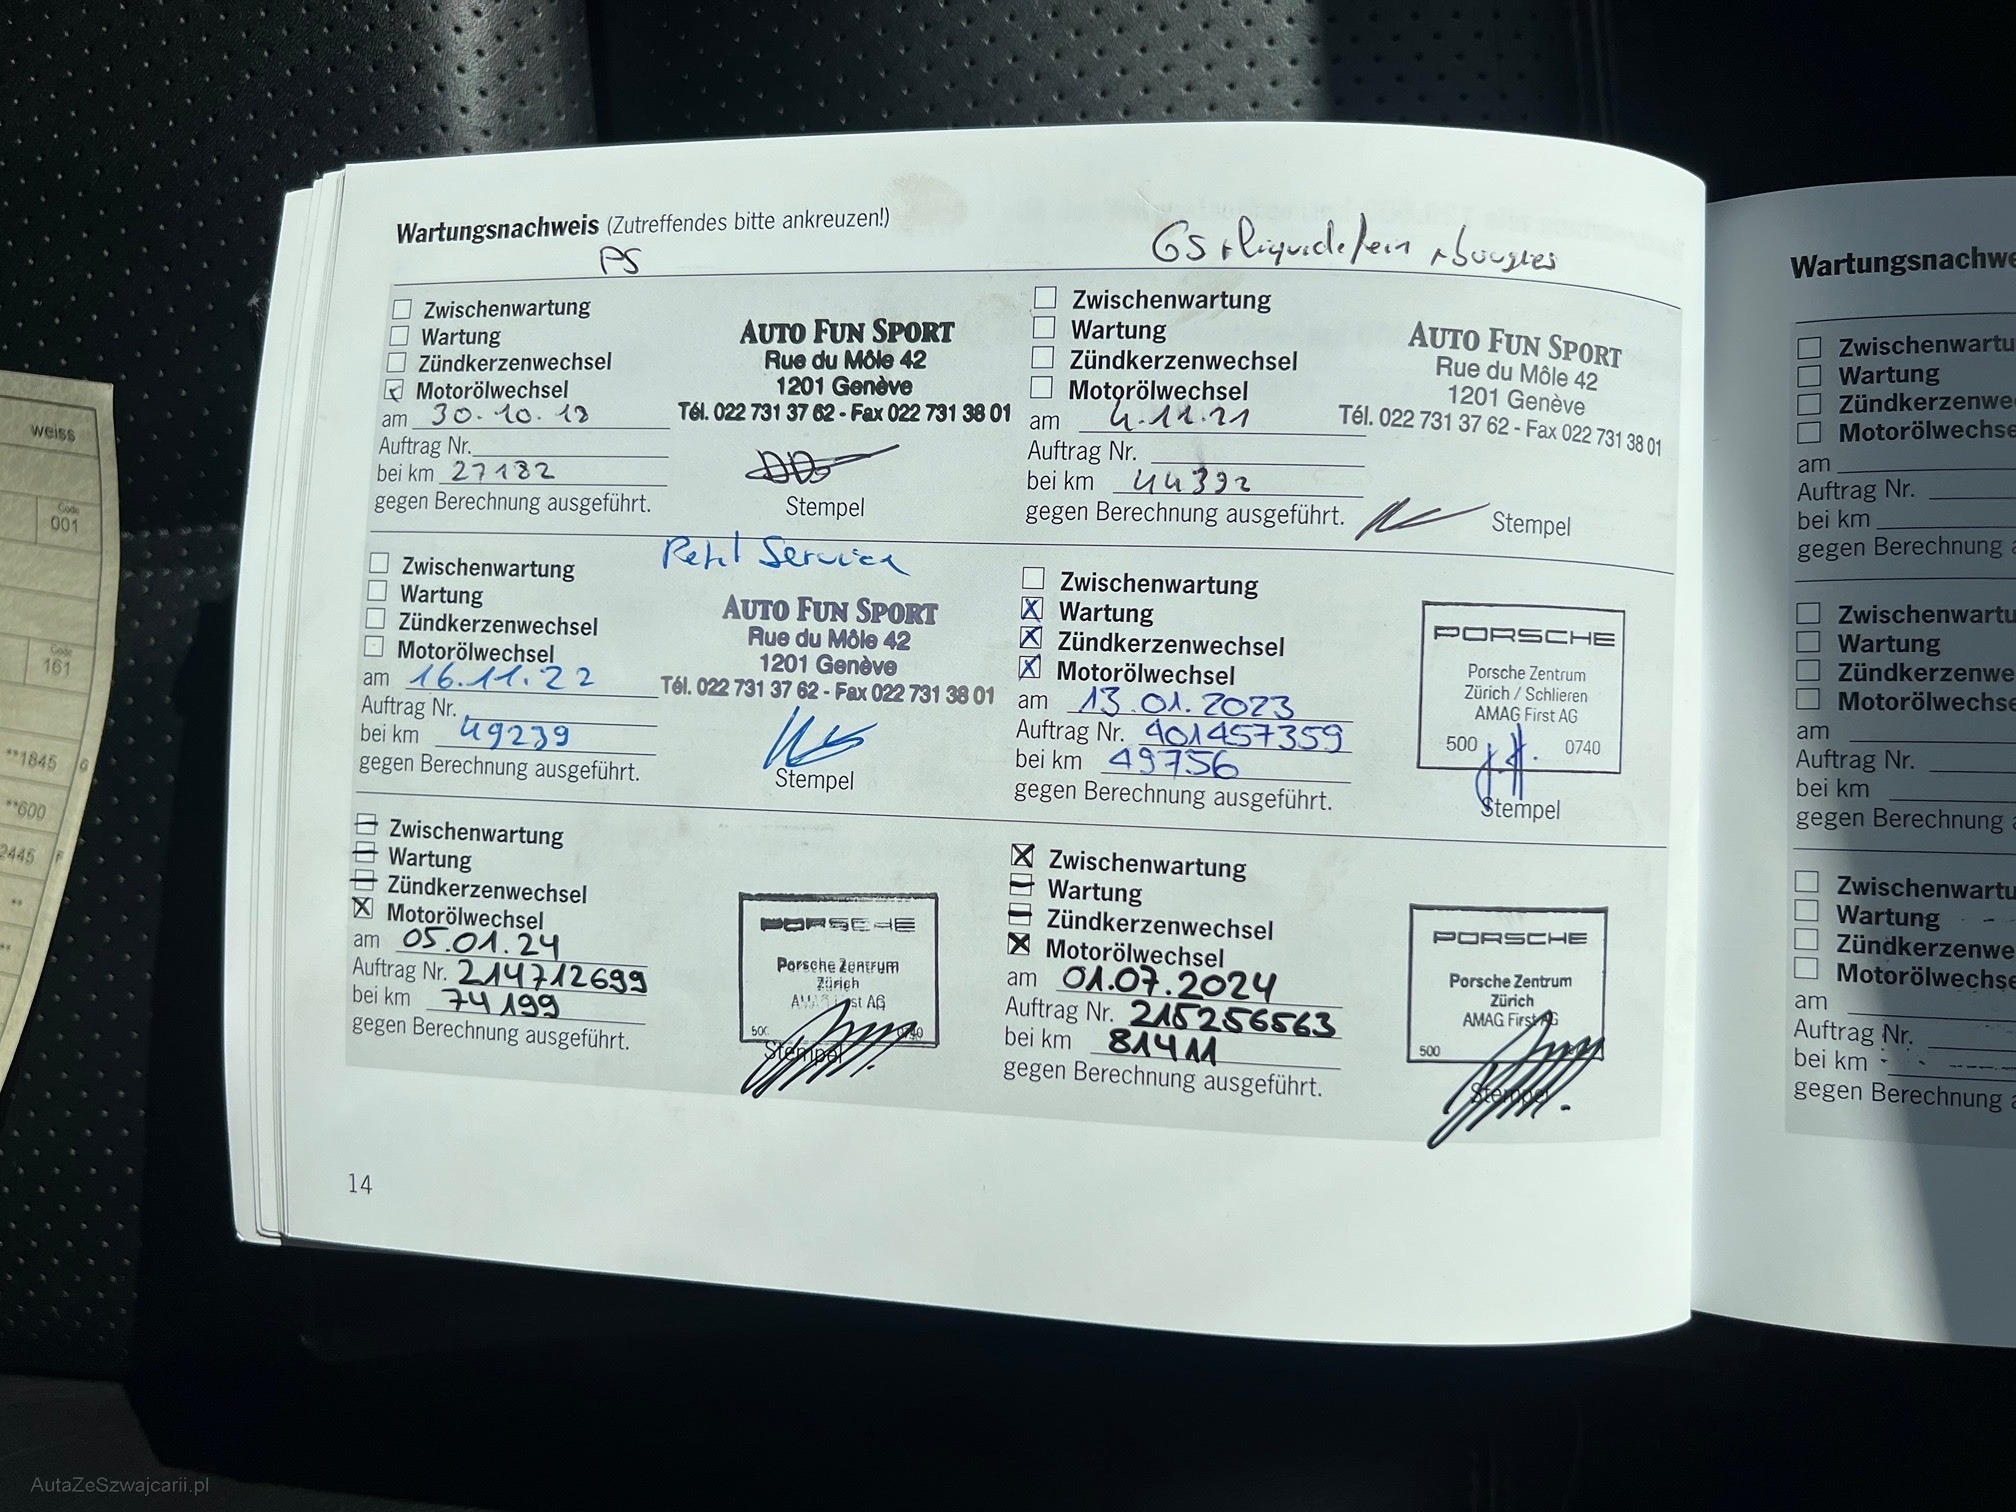 Wartungsnachweis (Zutreffendes bitte ankreuzen!)
PS
GS + liquide frein + bougies
Zwischenwartung
Wartung
Zündkerzenwechsel
Motorölwechsel
am 30.10.18
Auftrag Nr.
bei km 27182
gegen Berechnung ausgeführt.
AUTO FUN SPORT
Rue du Môle 42
1201 Genève
Tél. 022 731 37 62 - Fax 022 731 38 01
Stempel
Zwischenwartung
Wartung
Zündkerzenwechsel
Motorölwechsel
am 4.11.21
Auftrag Nr.
bei km 44392
gegen Berechnung ausgeführt.
AUTO FUN SPORT
Rue du Môle 42
1201 Genève
Tél. 022 731 37 62 - Fax 022 731 38 01
Stempel
Zwischenwartung
Wartung
Zündkerzenwechsel
Motorölwechsel
am 16.11.22
Auftrag Nr.
bei km 49239
gegen Berechnung ausgeführt.
Petit Service
AUTO FUN SPORT
Rue du Môle 42
1201 Genève
Tél. 022 731 37 62 - Fax 022 731 38 01
Stempel
Zwischenwartung
X Wartung
X Zündkerzenwechsel
X Motorölwechsel
am 13.01.2023
Auftrag Nr. 401457359
bei km 49756
gegen Berechnung ausgeführt.
PORSCHE
Porsche Zentrum
Zürich / Schlieren
AMAG First AG
500 0740
Stempel
Zwischenwartung
Wartung
Zündkerzenwechsel
X Motorölwechsel
am 05.01.24
Auftrag Nr. 214712699
bei km 74199
gegen Berechnung ausgeführt.
PORSCHE
Porsche Zentrum
Zürich
AMAG First AG
Stempel
X Zwischenwartung
Wartung
Zündkerzenwechsel
X Motorölwechsel
am 01.07.2024
Auftrag Nr. 215256563
bei km 81411
gegen Berechnung ausgeführt.
PORSCHE
Porsche Zentrum
Zürich
AMAG First AG
500
Stempel
14
Wartungsnachwe
Zwischenwartu
Wartung
Zündkerzenwe
Motorölwechse
am
Auftrag Nr.
bei km
gegen Berechnung a
Zwischenwartu
Wartung
Zündkerzenwe
Motorölwechse
am
Auftrag Nr.
bei km
gegen Berechnung a
Zwischenwartu
Wartung
Zündkerzenwe
Motorölwechse
am
Auftrag Nr.
bei km
gegen Berechnung a
weiss
Code
001
Code
161
**1845 G
**600
2445 F
**
**
AutaZeSzwajcarii.pl